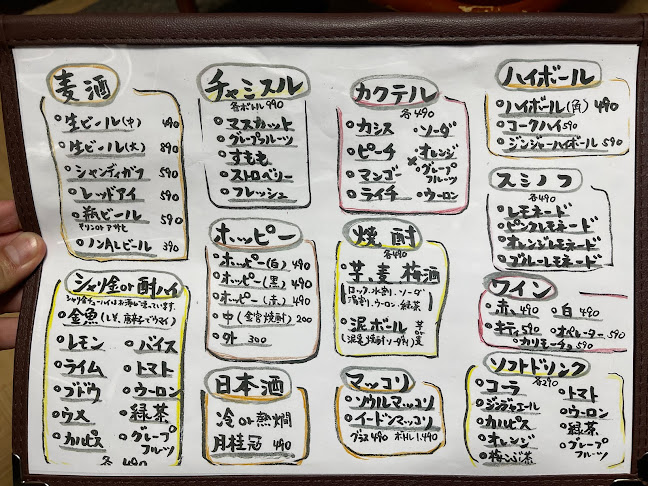 麦酒
生ビール(中) 490
生ビール(大) 890
シャンディガフ 590
レッドアイ 590
瓶ビール 590
キリンorアサヒ
ノンALビール 390
シャリ金or酎ハイ
シャリ金チューハイはお茶に凍っています。
金魚(しそ、唐辛子でウマイ)
レモン
バイス
ライム
トマト
ブドウ
ウーロン
ウメ
緑茶
カルピス
グレープフルーツ
各490
チャミスル
各ボトル990
マスカット
グレープフルーツ
すもも
ストロベリー
フレッシュ
ホッピー
ホッピー(白) 490
ホッピー(黒) 490
ホッピー(赤) 490
中(金宮焼酎) 200
外 300
日本酒
冷or熱燗
月桂冠 490
カクテル
各490
カシス
ソーダ
ピーチ
×
オレンジ
マンゴー
グレープフルーツ
ライチー
ウーロン
焼酎
各490
芋、麦 梅酒
ロック、水割、ソーダ
湯割、ウーロン、緑茶
泥ボール 芋or麦
マッコリ
ソウルマッコリ
イードンマッコリ
グラス490 ボトル1,490
ハイボール
ハイボール(角) 490
コークハイ590
ジンジャーハイボール 590
スミノフ
各490
レモネード
ピンクレモネード
オレンジレモネード
ブルーレモネード
ワイン
赤、490
白 490
キティ590
オペレーター590
カリモーチョ590
ソフトドリンク
各290
コーラ
トマト
ジンジャエール
ウーロン
カルピス
緑茶
オレンジ
グレープフルーツ
梅こぶ茶